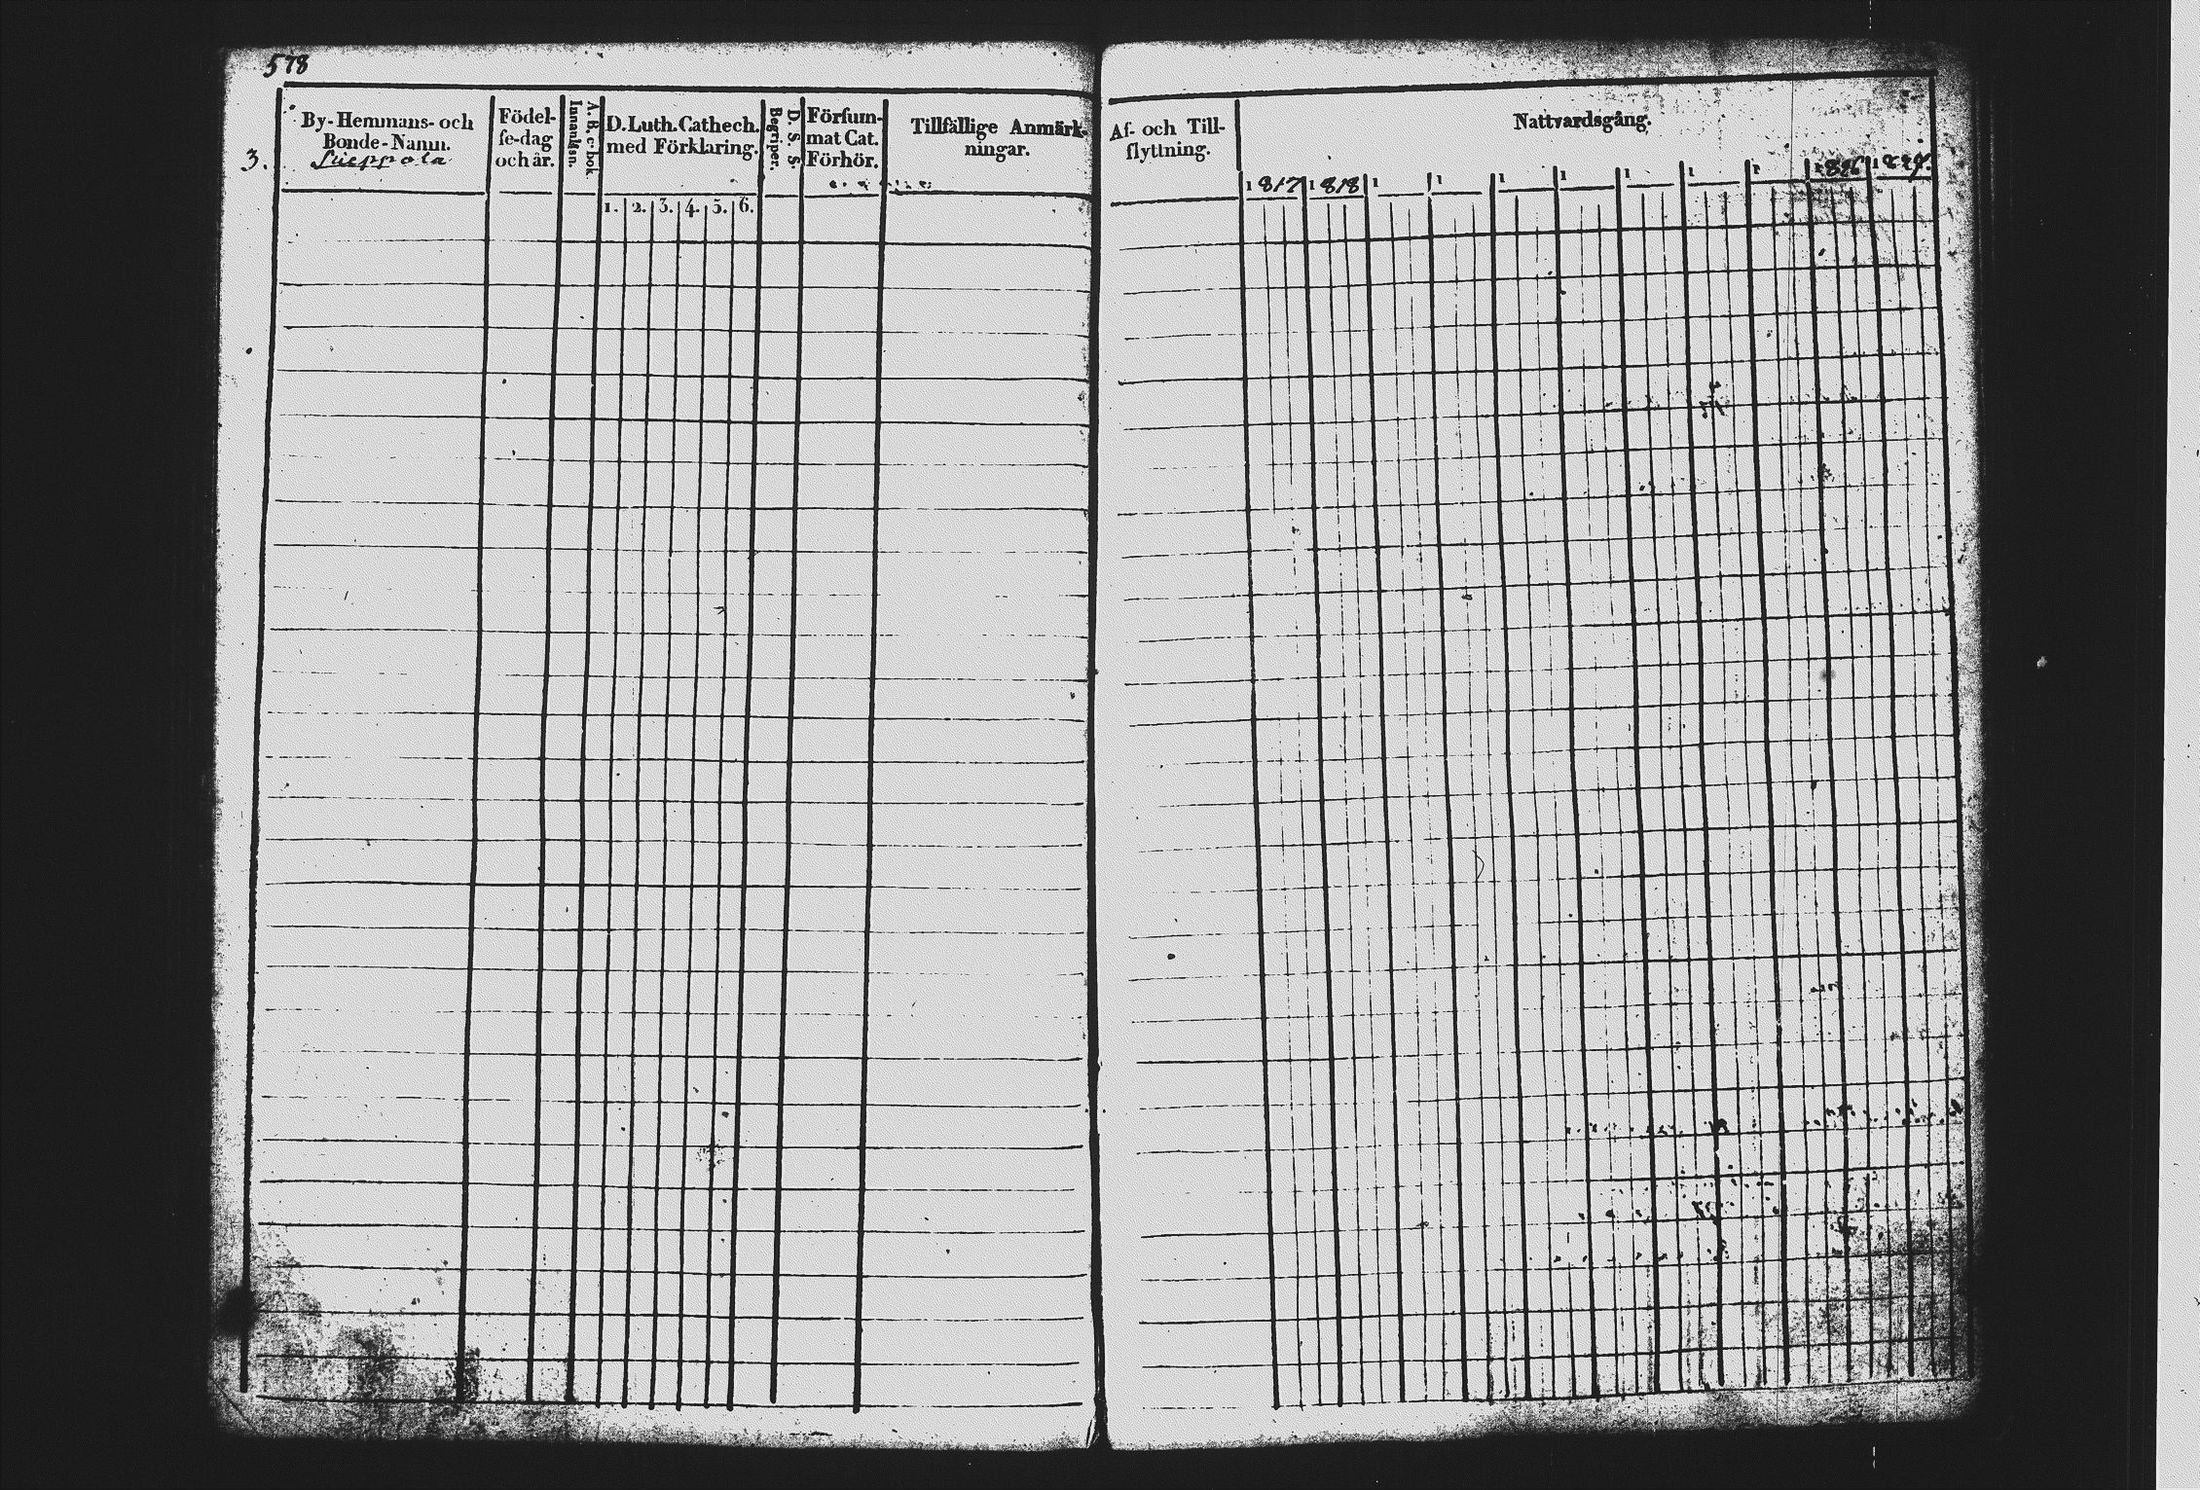 578
3.
By-Hemmans- och
Bonde-Namn.
Födel-
se-dag
och år.
A. B. c-bok
Innanläsn.
D. Luth. Cathech.
med Förklaring.
1. 2. 3. 4. 5. 6.
D. S. S.
Begriper.
Försum-
mat Cat.
Förhör.
Tillfällige Anmärk-
ningar.
Af- och Till-
flyttning.
Nattvardsgång.
1817 1818 1 1 1 1 1 1 1 1826 1827.